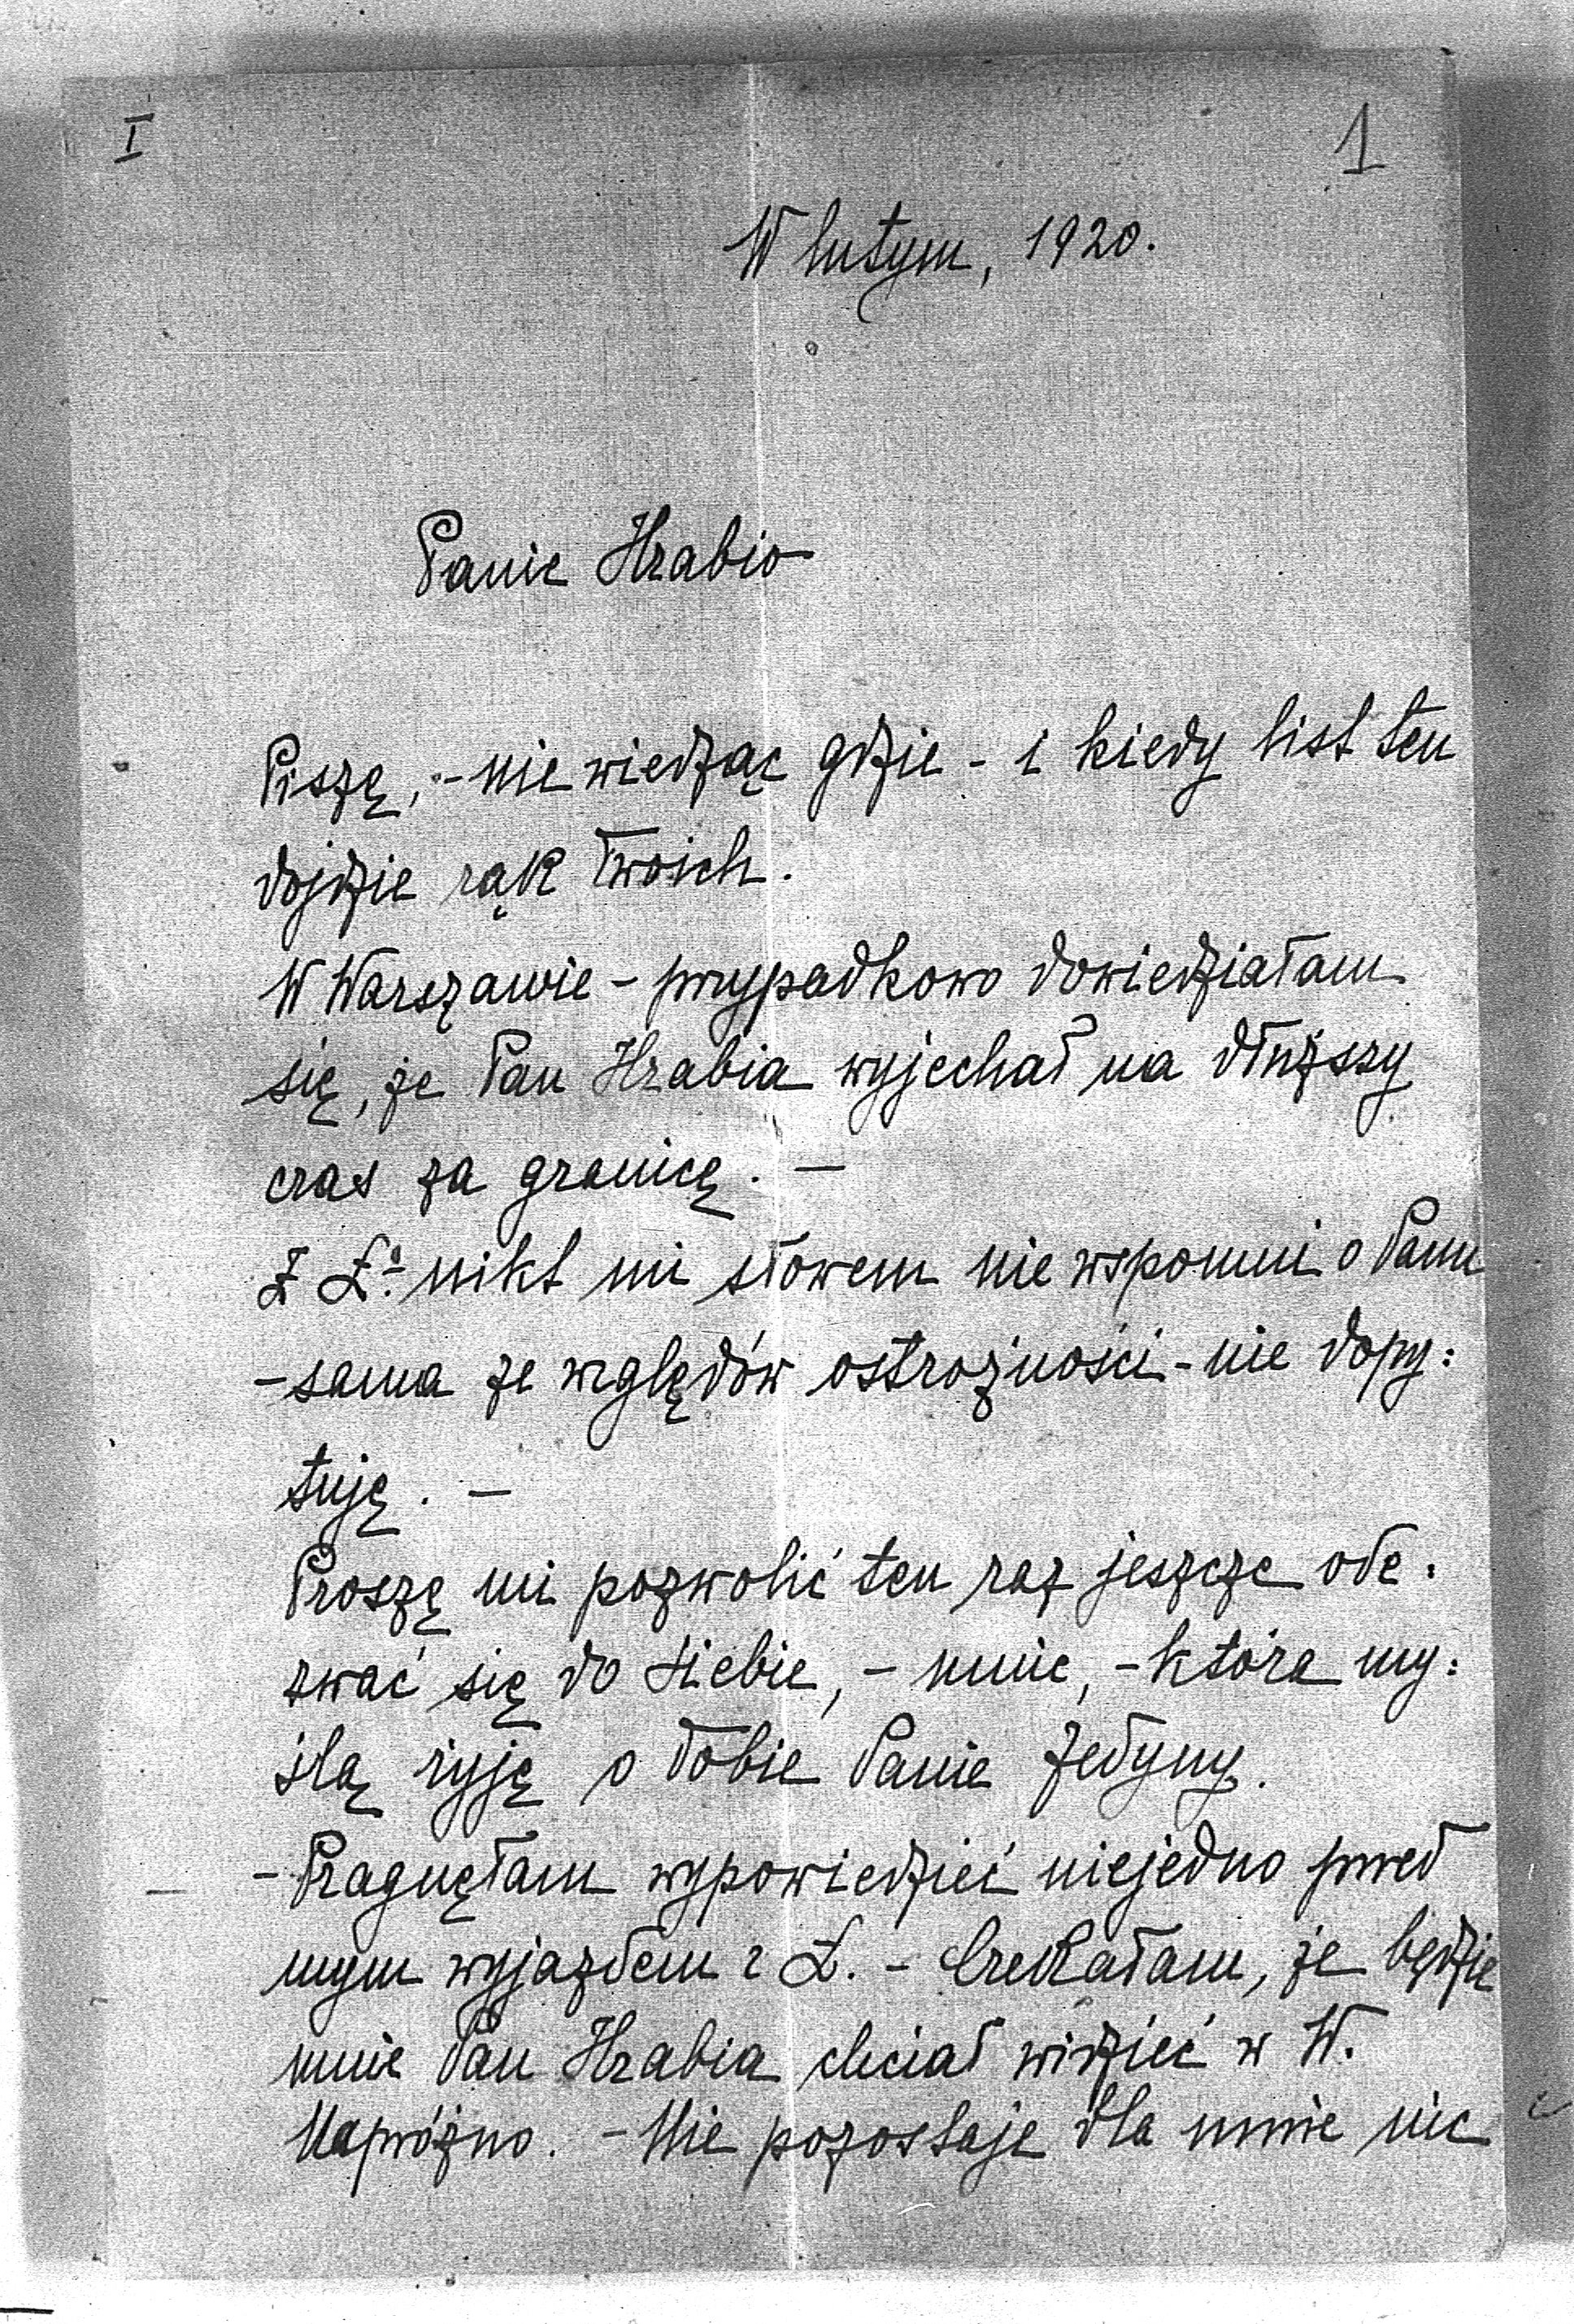 I
1
W lutym, 1920.
Panie Hrabio
Piszę, - nie wiedząc gdzie - i kiedy list ten
dojdzie rąk Twoich.
W Warszawie - przypadkowo dowiedziałam
się, że Pan Hrabia wyjechał na dłuższy
czas za granicę. —
Z Ł. nikt mi słowem nie wspomni o Panu
- sama ze względów ostrożności - nie dopy:
tuję. —
Proszę mi pozwolić ten raz jeszcze ode:
zwać się do siebie, - mnie, - która my:
ślą żyję o Tobie Panie Jedyny.
- Pragnęłam wypowiedzieć niejedno przed
mym wyjazdem z Ł. - Czekałam, że będzie
mnie Pan Hrabia chciał widzieć w W.
Napróżno. - Nie pozostaje dla mnie nic